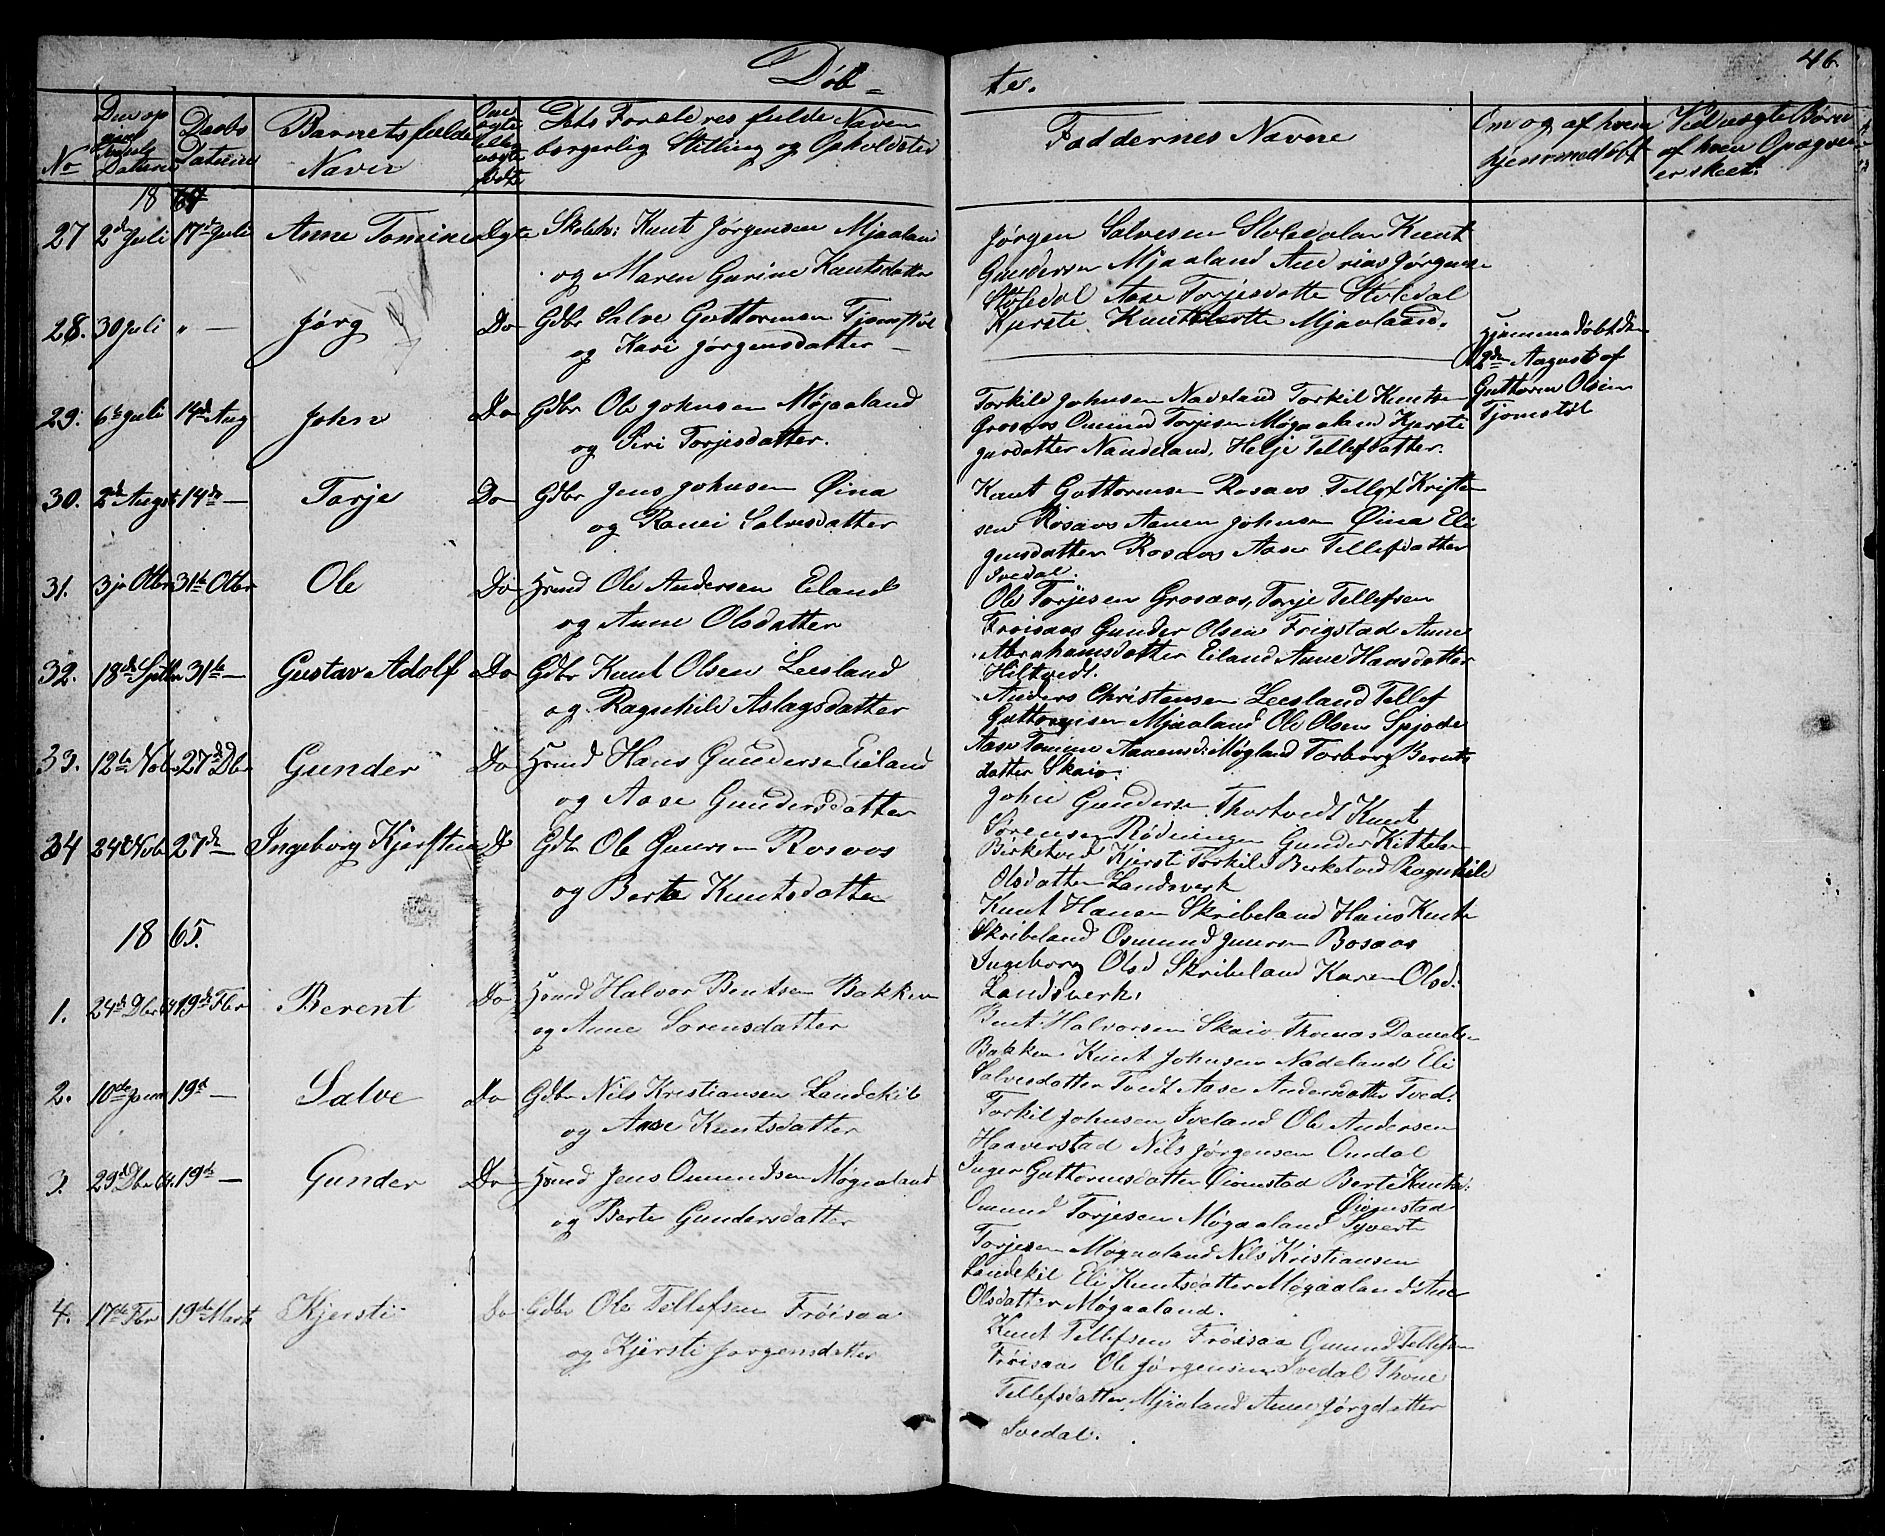 46
Døb-
te.
No
Den op
givne
Fødsels
Datum
Daabs
Datum
Barnets fulde
Navn
Om
ægte
eller
uægte
født
Dets Forældres fulde Navne
borgerlig Stilling og Opholdsted
Faddernes Navne
Om og af hvem
hjemmedøbt
Ved uægte Børn
af hvem Opagven
er skeet.
1864
27 2d Juli 17d Juli Anne Tomine Ægte Skoleh: Knut Jørgensen Mjaaland
og Maren Gurine Knutsdatter
Jørgen Salvesen Stoledalen Knut
Gundersen Mjaaland Andrias Jørgens
Støledal Aase Torjesdatte Stoledal
Kjersti Knutsdatte Mjaaland.
28. 30 Juli " — Jørg Do Gdbr Salve Guttormsen Tjomstøl
og Kari Jørgensdatter —
Hjemmedøbt den
2den August af
Guttorm Olsen
Tjomstøl
29. 6te Juli 14d Aug John Do Gdbr Ole Johnsen Møjaaland
og Siri Torjesdatter.
Torkild Johnsen Nadeland Torkil Knuts
Grosaas Omund Torjesen Møgaaland Kjersti
datter Naudeland, Helje Tellefsdatter.
30. 2de Augst 14de — Torje Do Gdbr Jens Johnsen Øina
og Ranei Salvesdatter
Knut Guttormsen Rosaas Tellef Kristen
sen Rosaas Aanen Johnsen Øina Eli
Jensdatter Rosaas Aase Tellefsdatter
Ivedal.
31. 3je Otbr 31te Otbr Ole Do Hsmd Ole Andersen Eiland
og Anne Olsdatter
Ole Torjesen Grosaas, Torje Tellefsen
Frøisaas Gunder Olsen Frigstad Anne
Abrahamsdatter Eiland Anne Hansdatter
Hiltvedt.
32. 18de Sptbr 31te — Gustav Adolf Do Gdbr Knut Olsen Leesland
og Ragnhild Aslagsdatter
Anders Christensen Leesland Tellef
Guttormsen Mjaaland Ole Olsen Spjode
Aase Tomine Aanensd: Møgland Torborg Bernts
datter Skaio.
33. 12te Nobr 27d Dbr Gunder Do Hsmd Hans Gundersen Eiland
og Aase Gundersdatter
John Gundersen Thortvedt Knut
Sørensen Rødningen Gunder Kittelsen
Birketved Kjersti Torkilsd Berketved Ragnhild
Olsdatter Landsverk
34 24d Nobr 27de — Ingeborg Kjerstine D Gdbr Ole Gunrsen Rosaas
og Berte Knutsdatter
Knut Hansen Skribeland Hans Knuts
Skribeland Osmund Gunrsen Bosaas
Ingeborg Olsd Skribeland Karen Olsd:
Landsverk.
1865.
1. 24d Dbr 64 19de Fbr Berent Do Hsmd Halvor Bentsen Bakken
og Anne Sorensdatter
Bent Halvorsen Skaio Thomas Daniels
Bakken Knut Johnsen Nadeland Eli
Salvesdatter Tvedt Aase Andersdatter Tved.
2. 10de Janu 19d — Salve Do Gdbr Nils Kristiansen Landekil
og Aase Knutsdatter
Torkil Johnsen Sveland Ole Andersen
Haaverstad Nils Jørgensen Omdal
Inger Guttormsdatter Øiomstad Berte Knutsd:
Øiomstad
3. 29d Dbr 64. 19de — Gunder Do Hsmd Jens Omundsen Møgaaland
og Berte Gundersdatter
Omund Torjesen Møgaaland Syvert
Torjesen Møgaaland Nils Kristiansen
Landekil Eli Knutsdatter Møgaaland Ane
Olsdatter Møgaaland.
4. 17de Fbr 19de Marts Kjersti Do Gdbr Ole Tellefsen Frøisaa
og Kjersti Jørgensdatter
Knut Tellefsen Frøisaa Omund Tellefsen
Frøisaa Ole Jørgensen Ivedal Thone
Tellefsdatter Mjaaland Anne Jørgdatter
Ivedal.